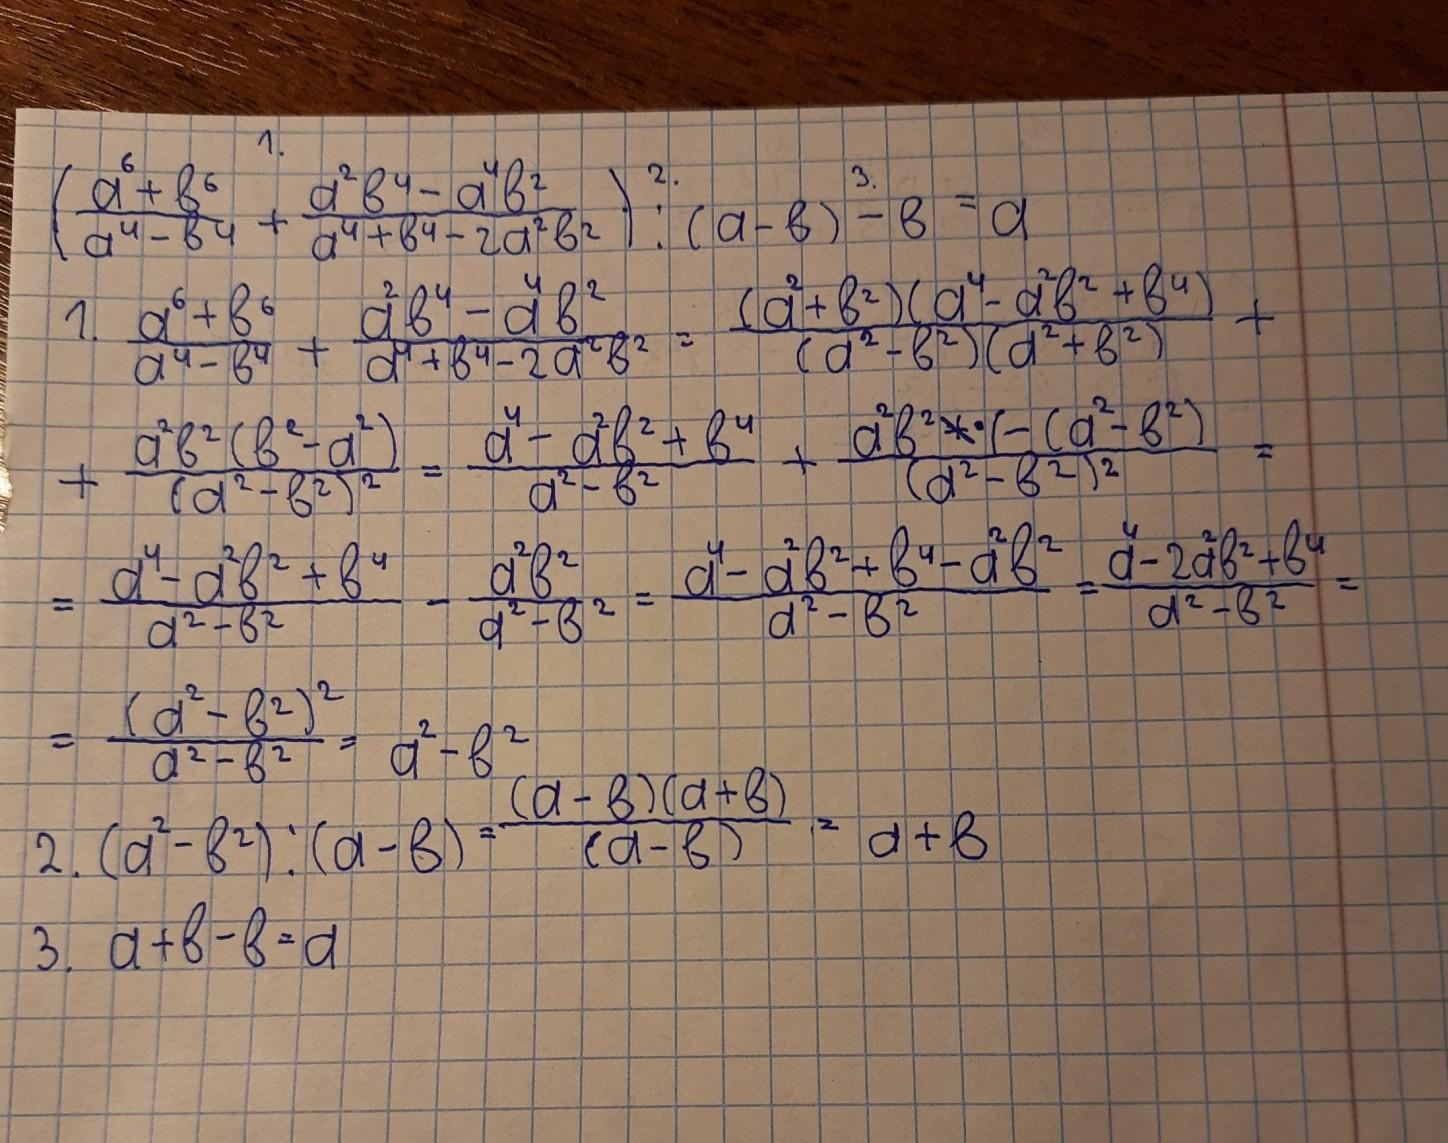 1. 2. 3.
(a⁶+b⁶/a⁴-b⁴ + a²b⁴-a⁴b²/a⁴+b⁴-2a²b²) : (a-b) - b = a
1. a⁶+b⁶/a⁴-b⁴ + a²b⁴-a⁴b²/a⁴+b⁴-2a²b² = (a²+b²)(a⁴-a²b²+b⁴)/(a²-b²)(a²+b²) +
+ a²b²(b²-a²)/(a²-b²)² = a⁴-a²b²+b⁴/a²-b² + a²b²·(-(a²-b²)/(a²-b²)² =
= a⁴-a²b²+b⁴/a²-b² - a²b²/a²-b² = a⁴-a²b²+b⁴-a²b²/a²-b² = a⁴-2a²b²+b⁴/a²-b² =
= (a²-b²)²/a²-b² = a²-b²
2. (a²-b²):(a-b) = (a-b)(a+b)/(a-b) = a+b
3. a+b-b=a